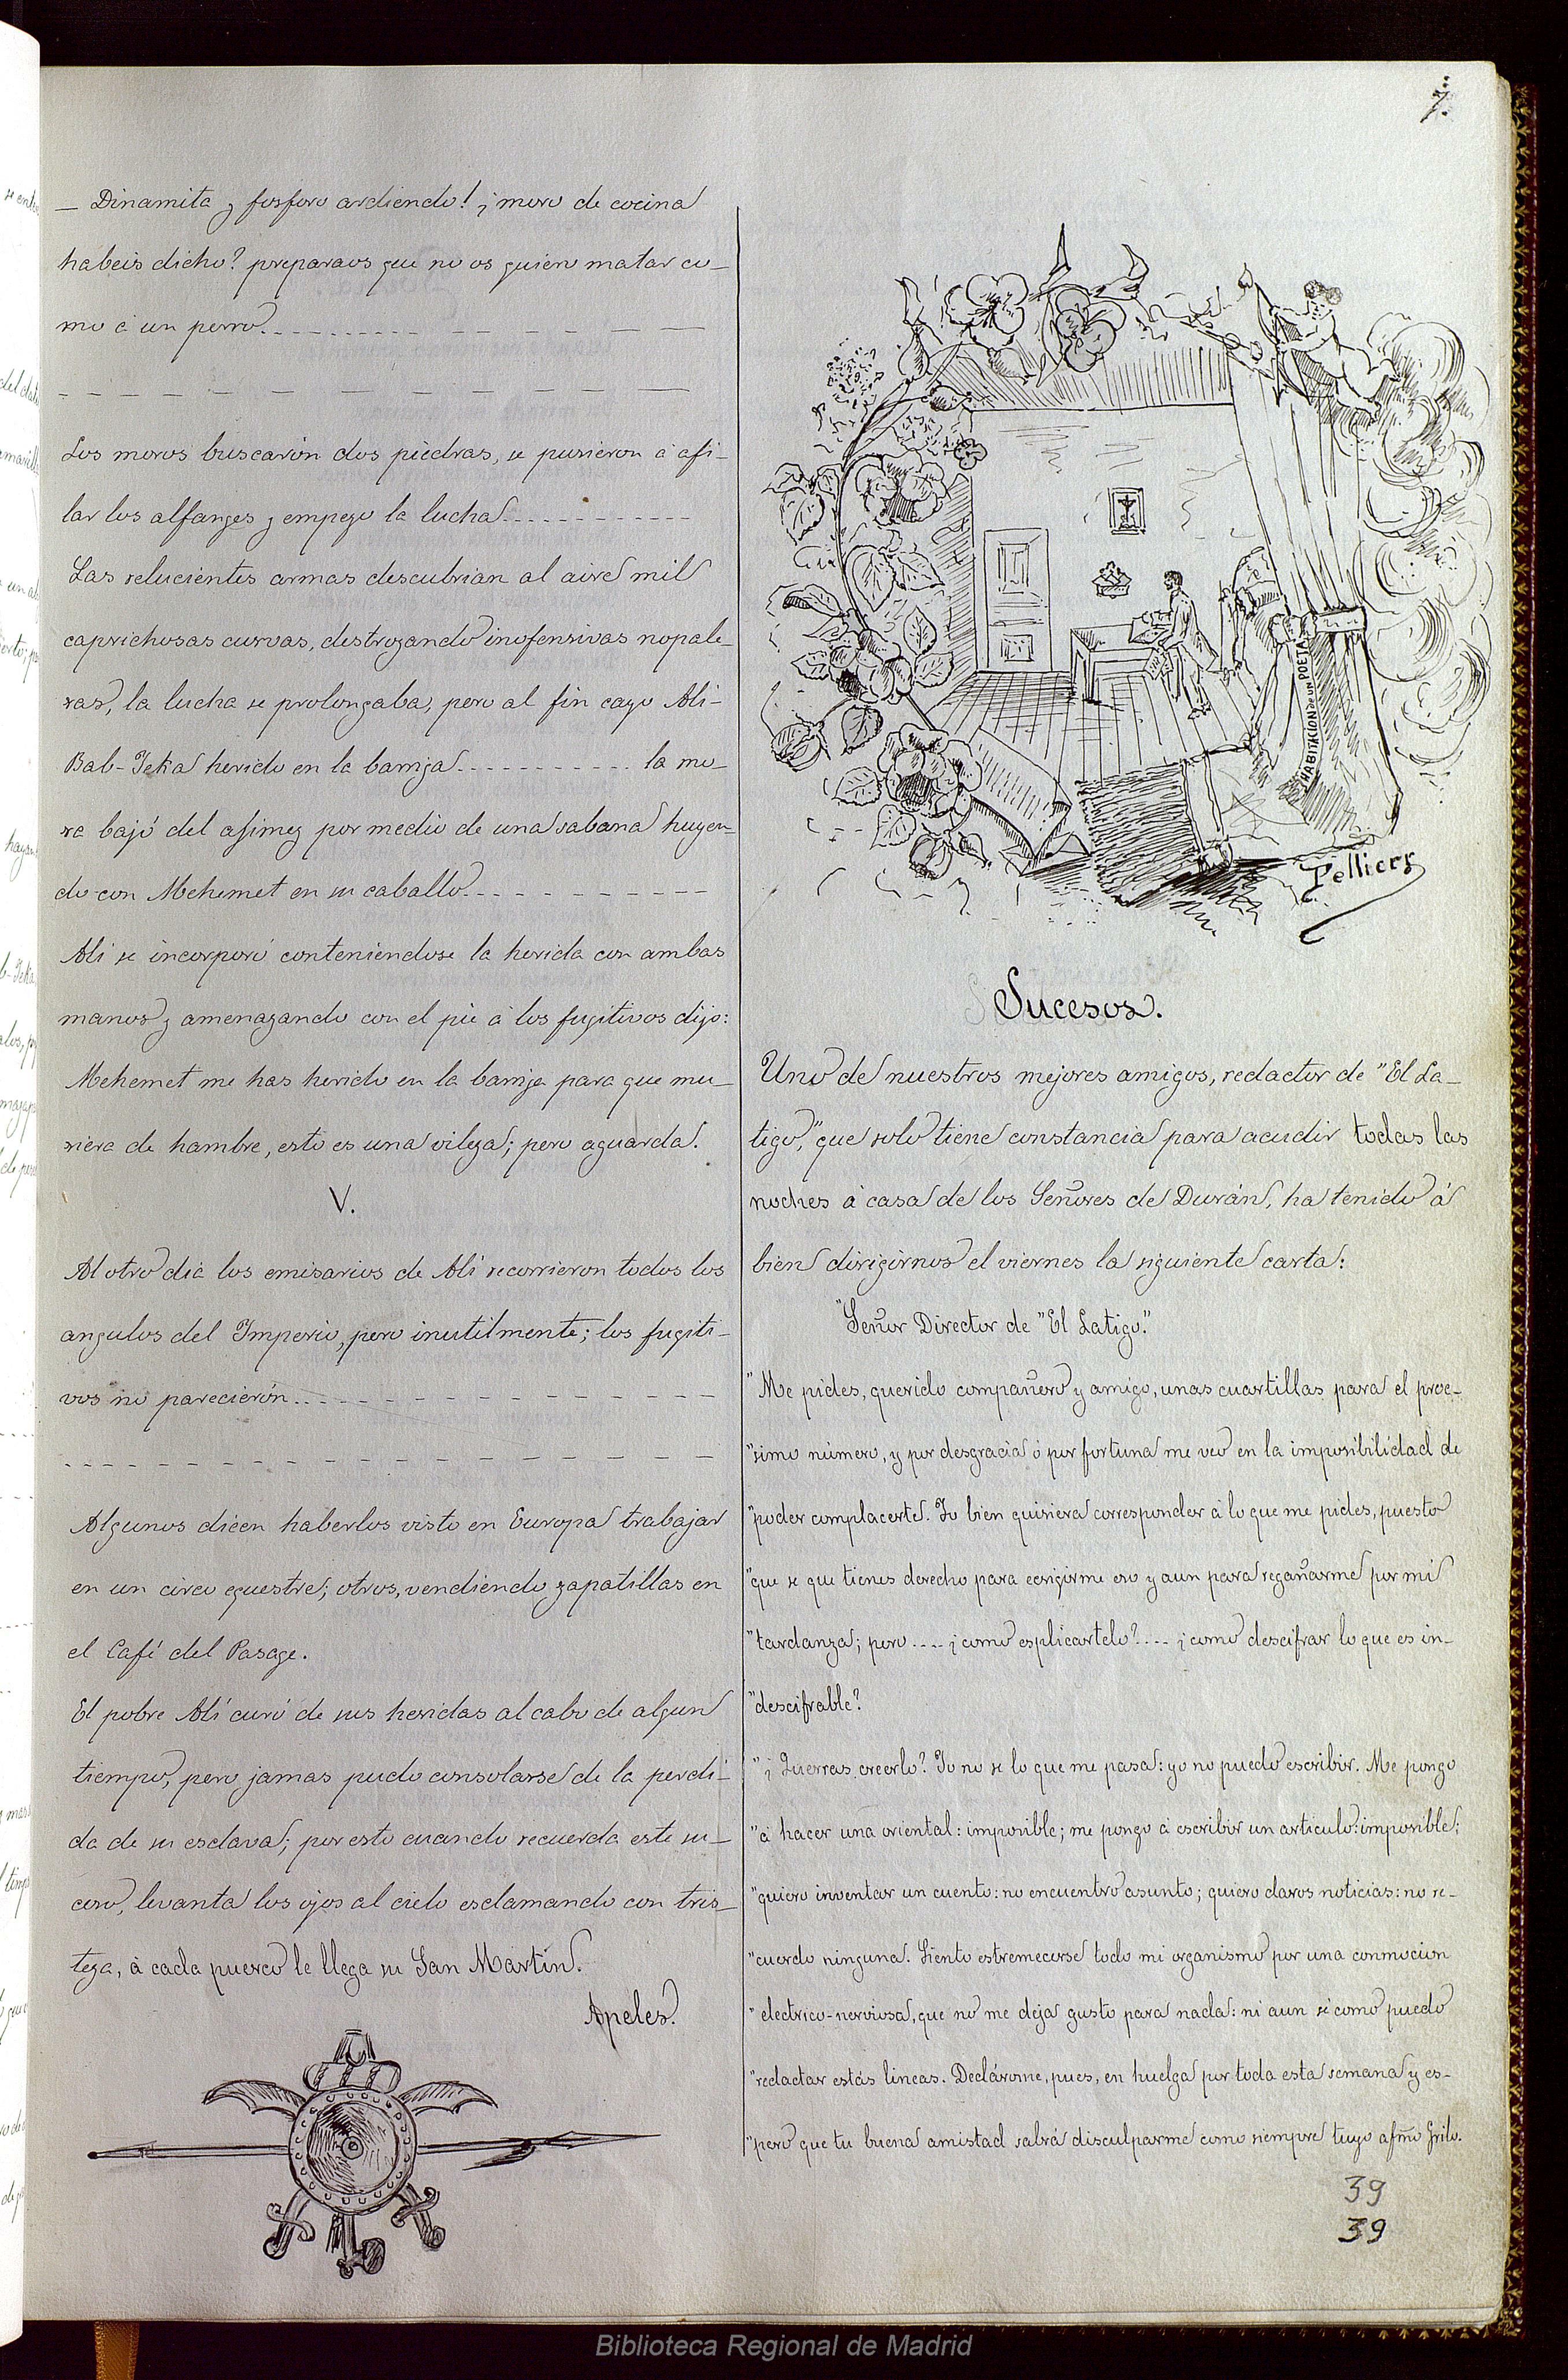 7.
— Dinamita y fosforo ardiendo! ¡moro de cocina
habeis dicho? preparaos que no os quiero matar co-
mo á un perro.
Los moros buscarón dos piedras, se pusieron á afi-
lar los alfanges y empezo la lucha
Las relucientes armas descubrian al aire mil
caprichosas curvas, destrozando inofensivas nopale-
ras, la lucha se prolongaba, pero al fin cayo Ali-
Bab-Teka herido en la barriga............ la mo-
ra bajó del ajimez por medio de una sabana huyen-
do con Mehemet en su caballo
Ali se incorporó conteniendose la herida con ambas
manos y amenazando con el pie á los fugitivos dijo:
Mehemet me has herido en la barriga para que mu-
riera de hambre, esto es una vileza; pero aguarda.
V.
Al otro dia los emisarios de Ali recorrieron todos los
angulos del Imperio, pero inutilmente; los fugiti-
vos no parecierón
Algunos dicen haberlos visto en Europa trabajar
en un circo equestre; otros, vendiendo zapatillas en
el Café del Pasage.
El pobre Alí curó de sus heridas al cabo de algun
tiempo, pero jamas pudo consolarse de la perdi-
da de su esclava; por esto cuando recuerda este su-
ceso, levanta los ojos al cielo esclamando con tris-
teza, á cada puerco le llega su San Martin.
Apeles.
HABITACION DE UN POETA
Pellicer
Sucesos.
Uno de nuestros mejores amigos, redactor de "El La-
tigo," que solo tiene constancia para acudir todas las
noches á casa de los Señores de Durán, ha tenido á
bien dirigirnos el viernes la siguiente carta:
"Señor Director de "El Latigo."
"Me pides, querido compañero y amigo, unas cuartillas para el proc-
"simo número, y por desgracia ó por fortuna me veo en la imposibilidad de
"poder complacerte. Yo bien quisiera corresponder á lo que me pides, puesto
"que se que tienes derecho para ecsigirme eso y aun para regañarme por mi
"tardanza; pero.... ¡como esplicartelo?.... ¡como descifrar lo que es in-
"descifrable?
"¡Querras creerlo? Yo no se lo que me pasa: yo no puedo escribir. Me pongo
"á hacer una oriental: imposible; me pongo á escribir un articulo: imposible;
"quiero inventar un cuento: no encuentro asunto; quiero daros noticias: no re-
"cuerdo ninguna. Siento estremecerse todo mi organismo por una conmocion
"electrico-nerviosa, que no me deja gusto para nada: ni aun sé como puedo
"redactar estás lineas. Declárome, pues, en huelga por toda esta semana y es-
"pero que tu buena amistad sabrá disculparme como siempre tuyo afmo Grilo.
39
39
Biblioteca Regional de Madrid